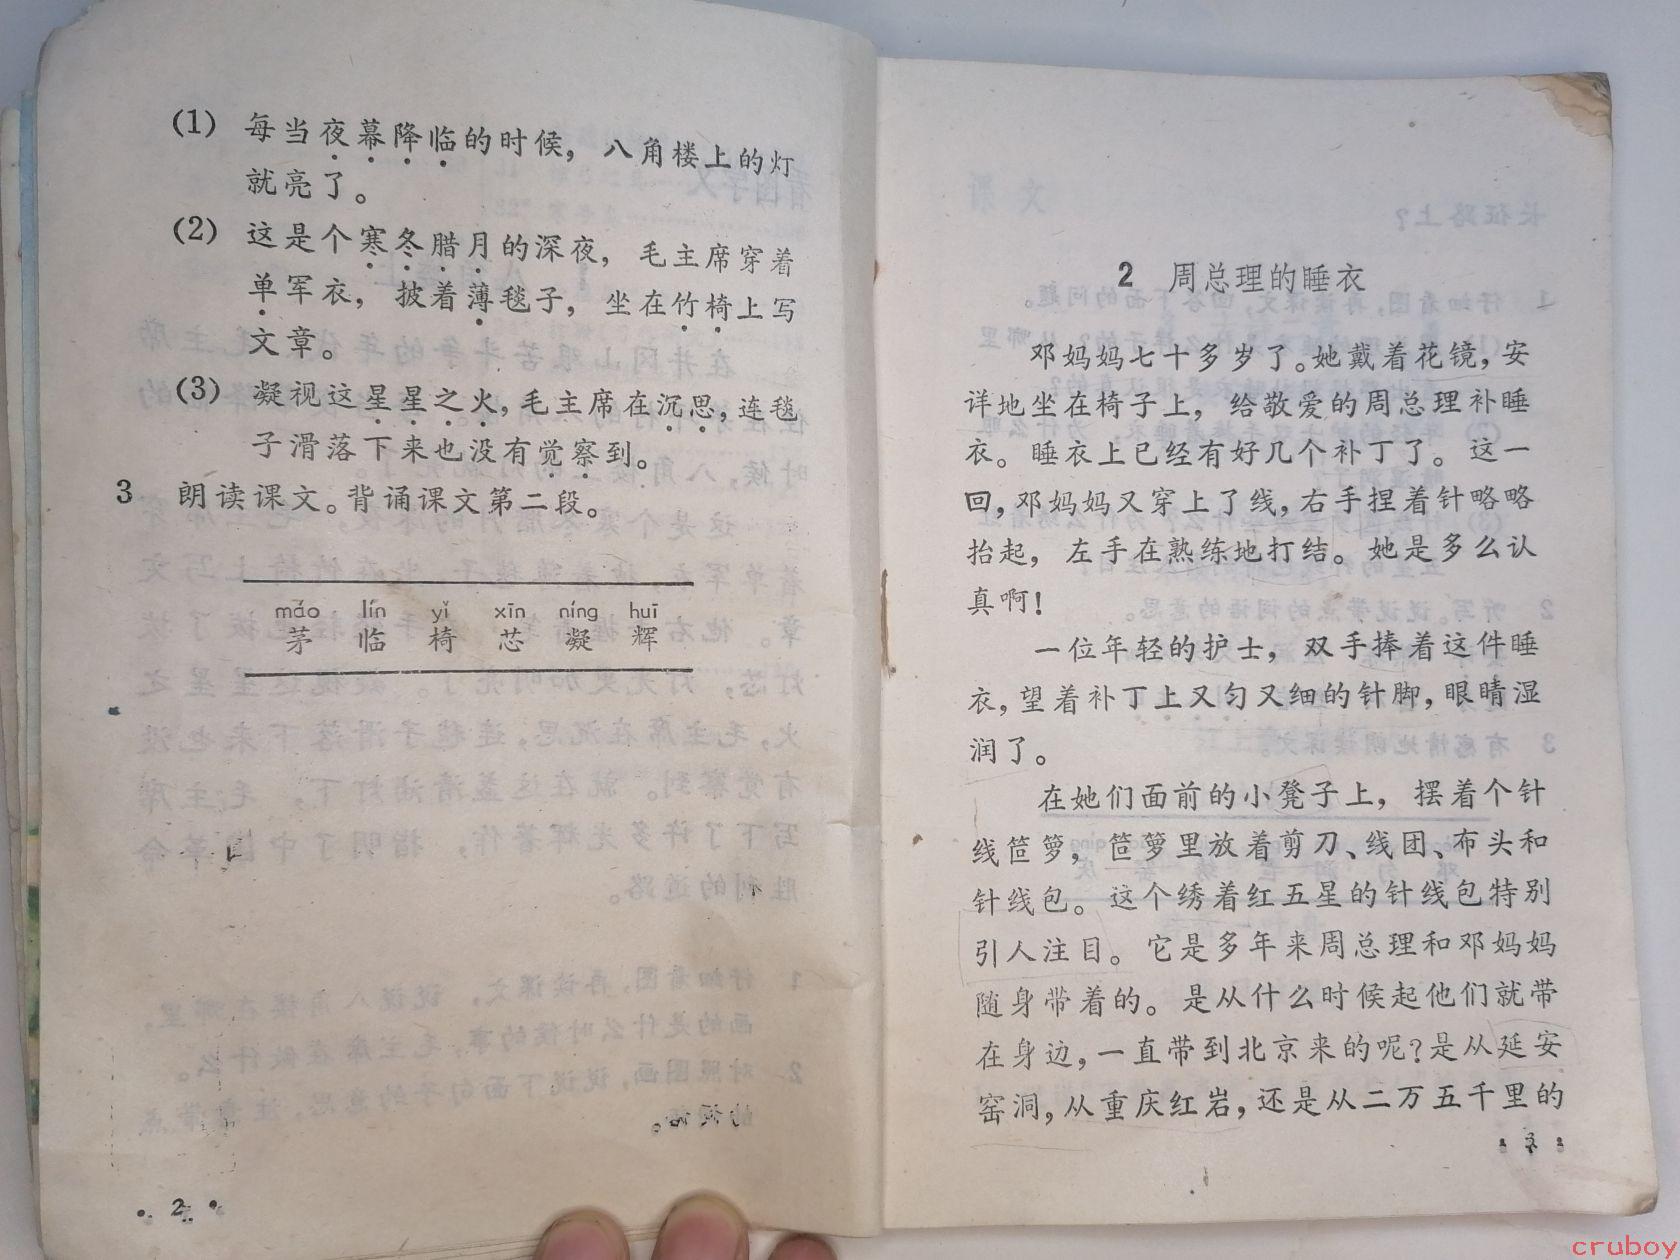 (1) 每当夜幕降临的时候，八角楼上的灯
就亮了。
(2) 这是个寒冬腊月的深夜，毛主席穿着
单军衣，披着薄毯子，坐在竹椅上写
文章。
(3) 凝视这星星之火，毛主席在沉思，连毯
子滑落下来也没有觉察到。
3 朗读课文。背诵课文第二段。
máo lín yǐ xīn níng huī
茅 临 椅 芯 凝 辉
·2·
2 周总理的睡衣
邓妈妈七十多岁了。她戴着花镜，安
详地坐在椅子上，给敬爱的周总理补睡
衣。睡衣上已经有好几个补丁了。这一
回，邓妈妈又穿上了线，右手捏着针略略
抬起，左手在熟练地打结。她是多么认
真啊！
一位年轻的护士，双手捧着这件睡
衣，望着补丁上又匀又细的针脚，眼睛湿
润了。
在她们面前的小凳子上，摆着个针
线笸箩，笸箩里放着剪刀、线团、布头和
针线包。这个绣着红五星的针线包特别
引人注目。它是多年来周总理和邓妈妈
随身带着的。是从什么时候起他们就带
在身边，一直带到北京来的呢？是从延安
窑洞，从重庆红岩，还是从二万五千里的
·3·
cruboy